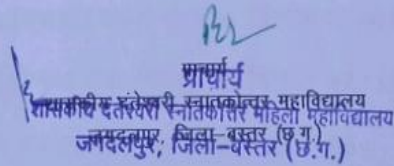 प्राचार्य
शासकीय दंतेश्वरी स्नातकोत्तर महिला महाविद्यालय
जगदलपुर, जिला-बस्तर (छ.ग.)